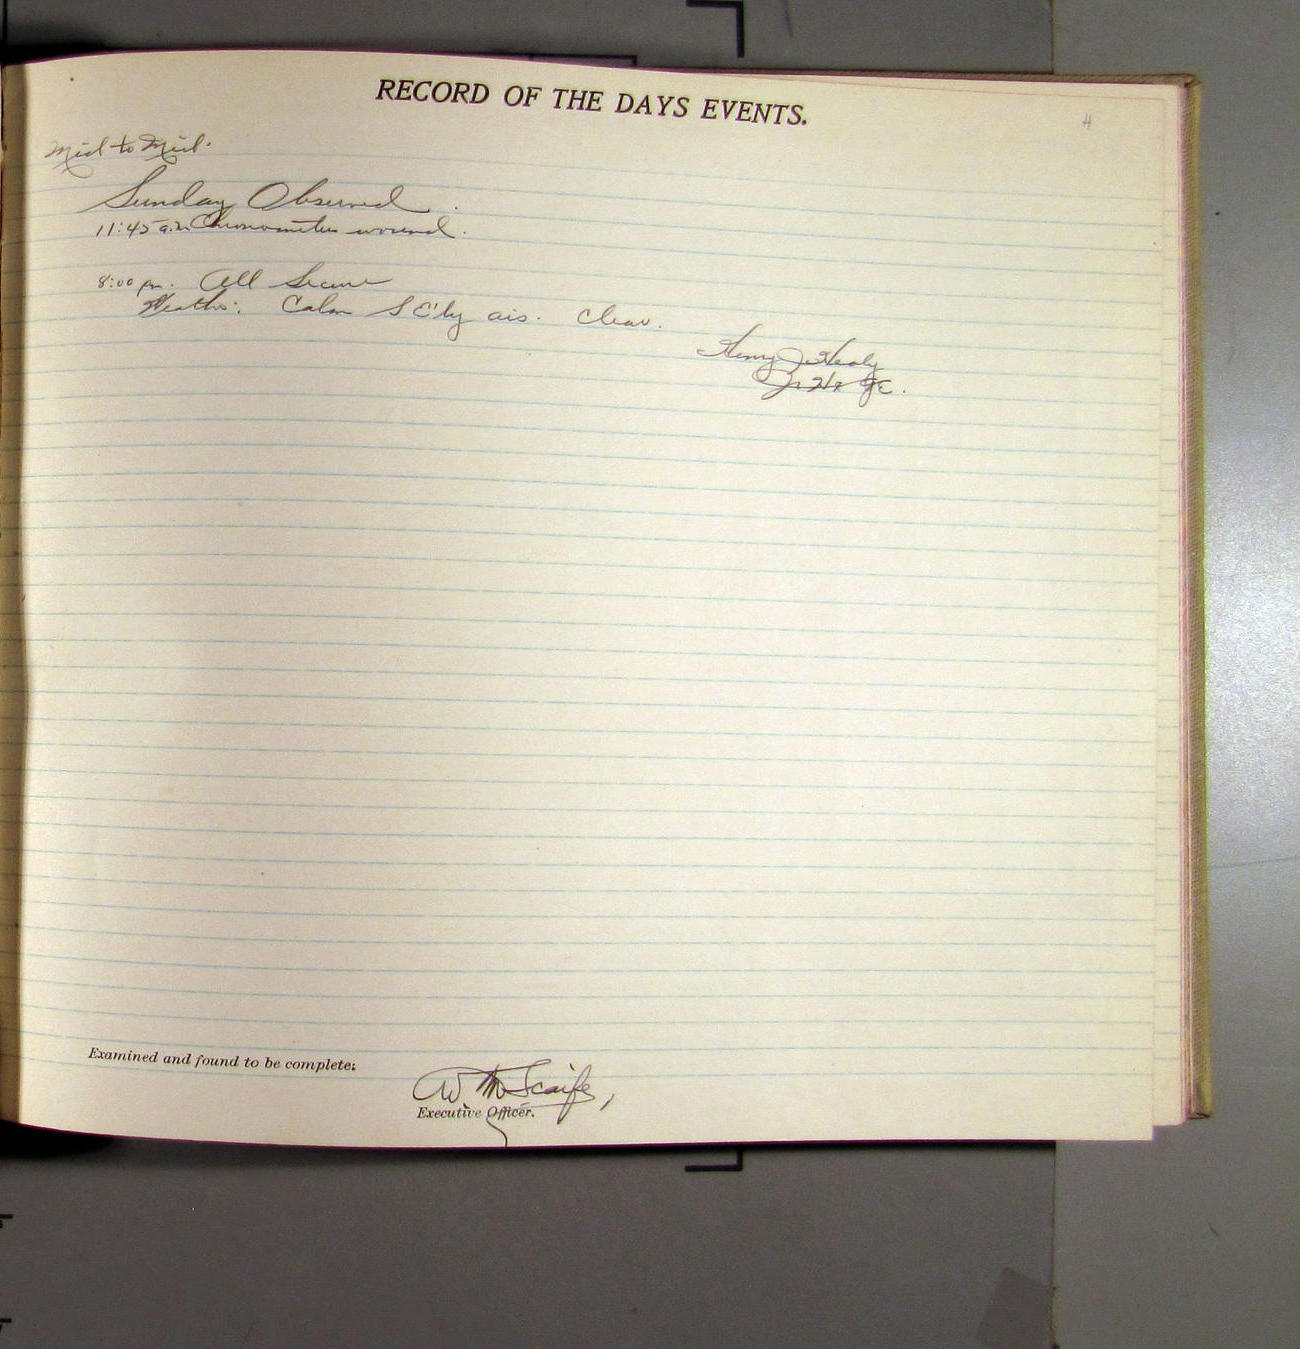 RECORD OF THE DAYS EVENTS.
4
Mid to Mid.
Sunday Observed.
11:45 a.m. Chronometers wound.
8:00 pm. All Secure
Weather: Calm S E'ly airs. Clear.
Henry J. Healy
Examined and found to be complete:
W M Scaife,
Executive Officer.